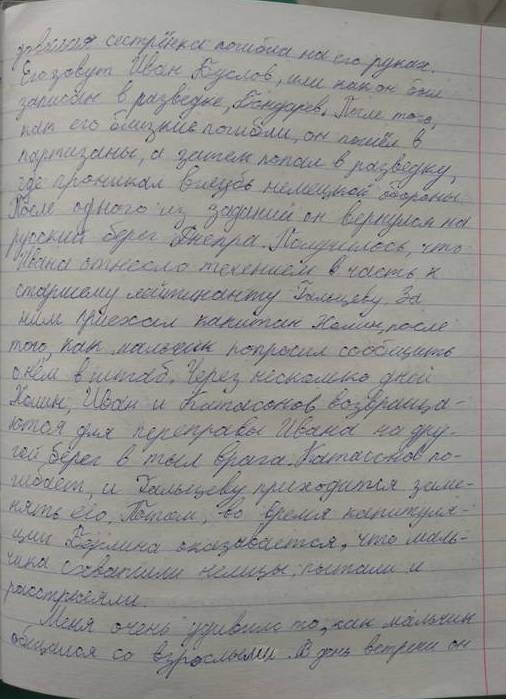 довалая сестрёнка погибла на его руках.
Его зовут Иван Буслов, или как он был
записан в разведке, Бондарев. После того,
как его близкие погибли, он пошёл в
партизаны, а затем попал в разведку,
где проникал вглубь немецкой обороны.
После одного из заданий он вернулся на
русский берег Днепра. Получилось, что
Ивана отнесло течением в часть к
старшему лейтинанту Гальцеву. За
ним приехал капитан Холин, после
того, как мальчик попросил сообщить
о нём в штаб. Через несколько дней
Холин, Иван и Катасонов возвраща-
ются для переправы Ивана на дру-
гой берег в тыл врага. Катасонов по-
гибает, и Гальцеву приходится заме-
нять его. Потом, во время капитуля-
ции Берлина оказавается, что маль-
чика схватили немцы, пытали и
расстреляли.
Меня очень удивило то, как мальчик
общался со взрослыми. В день встречи он